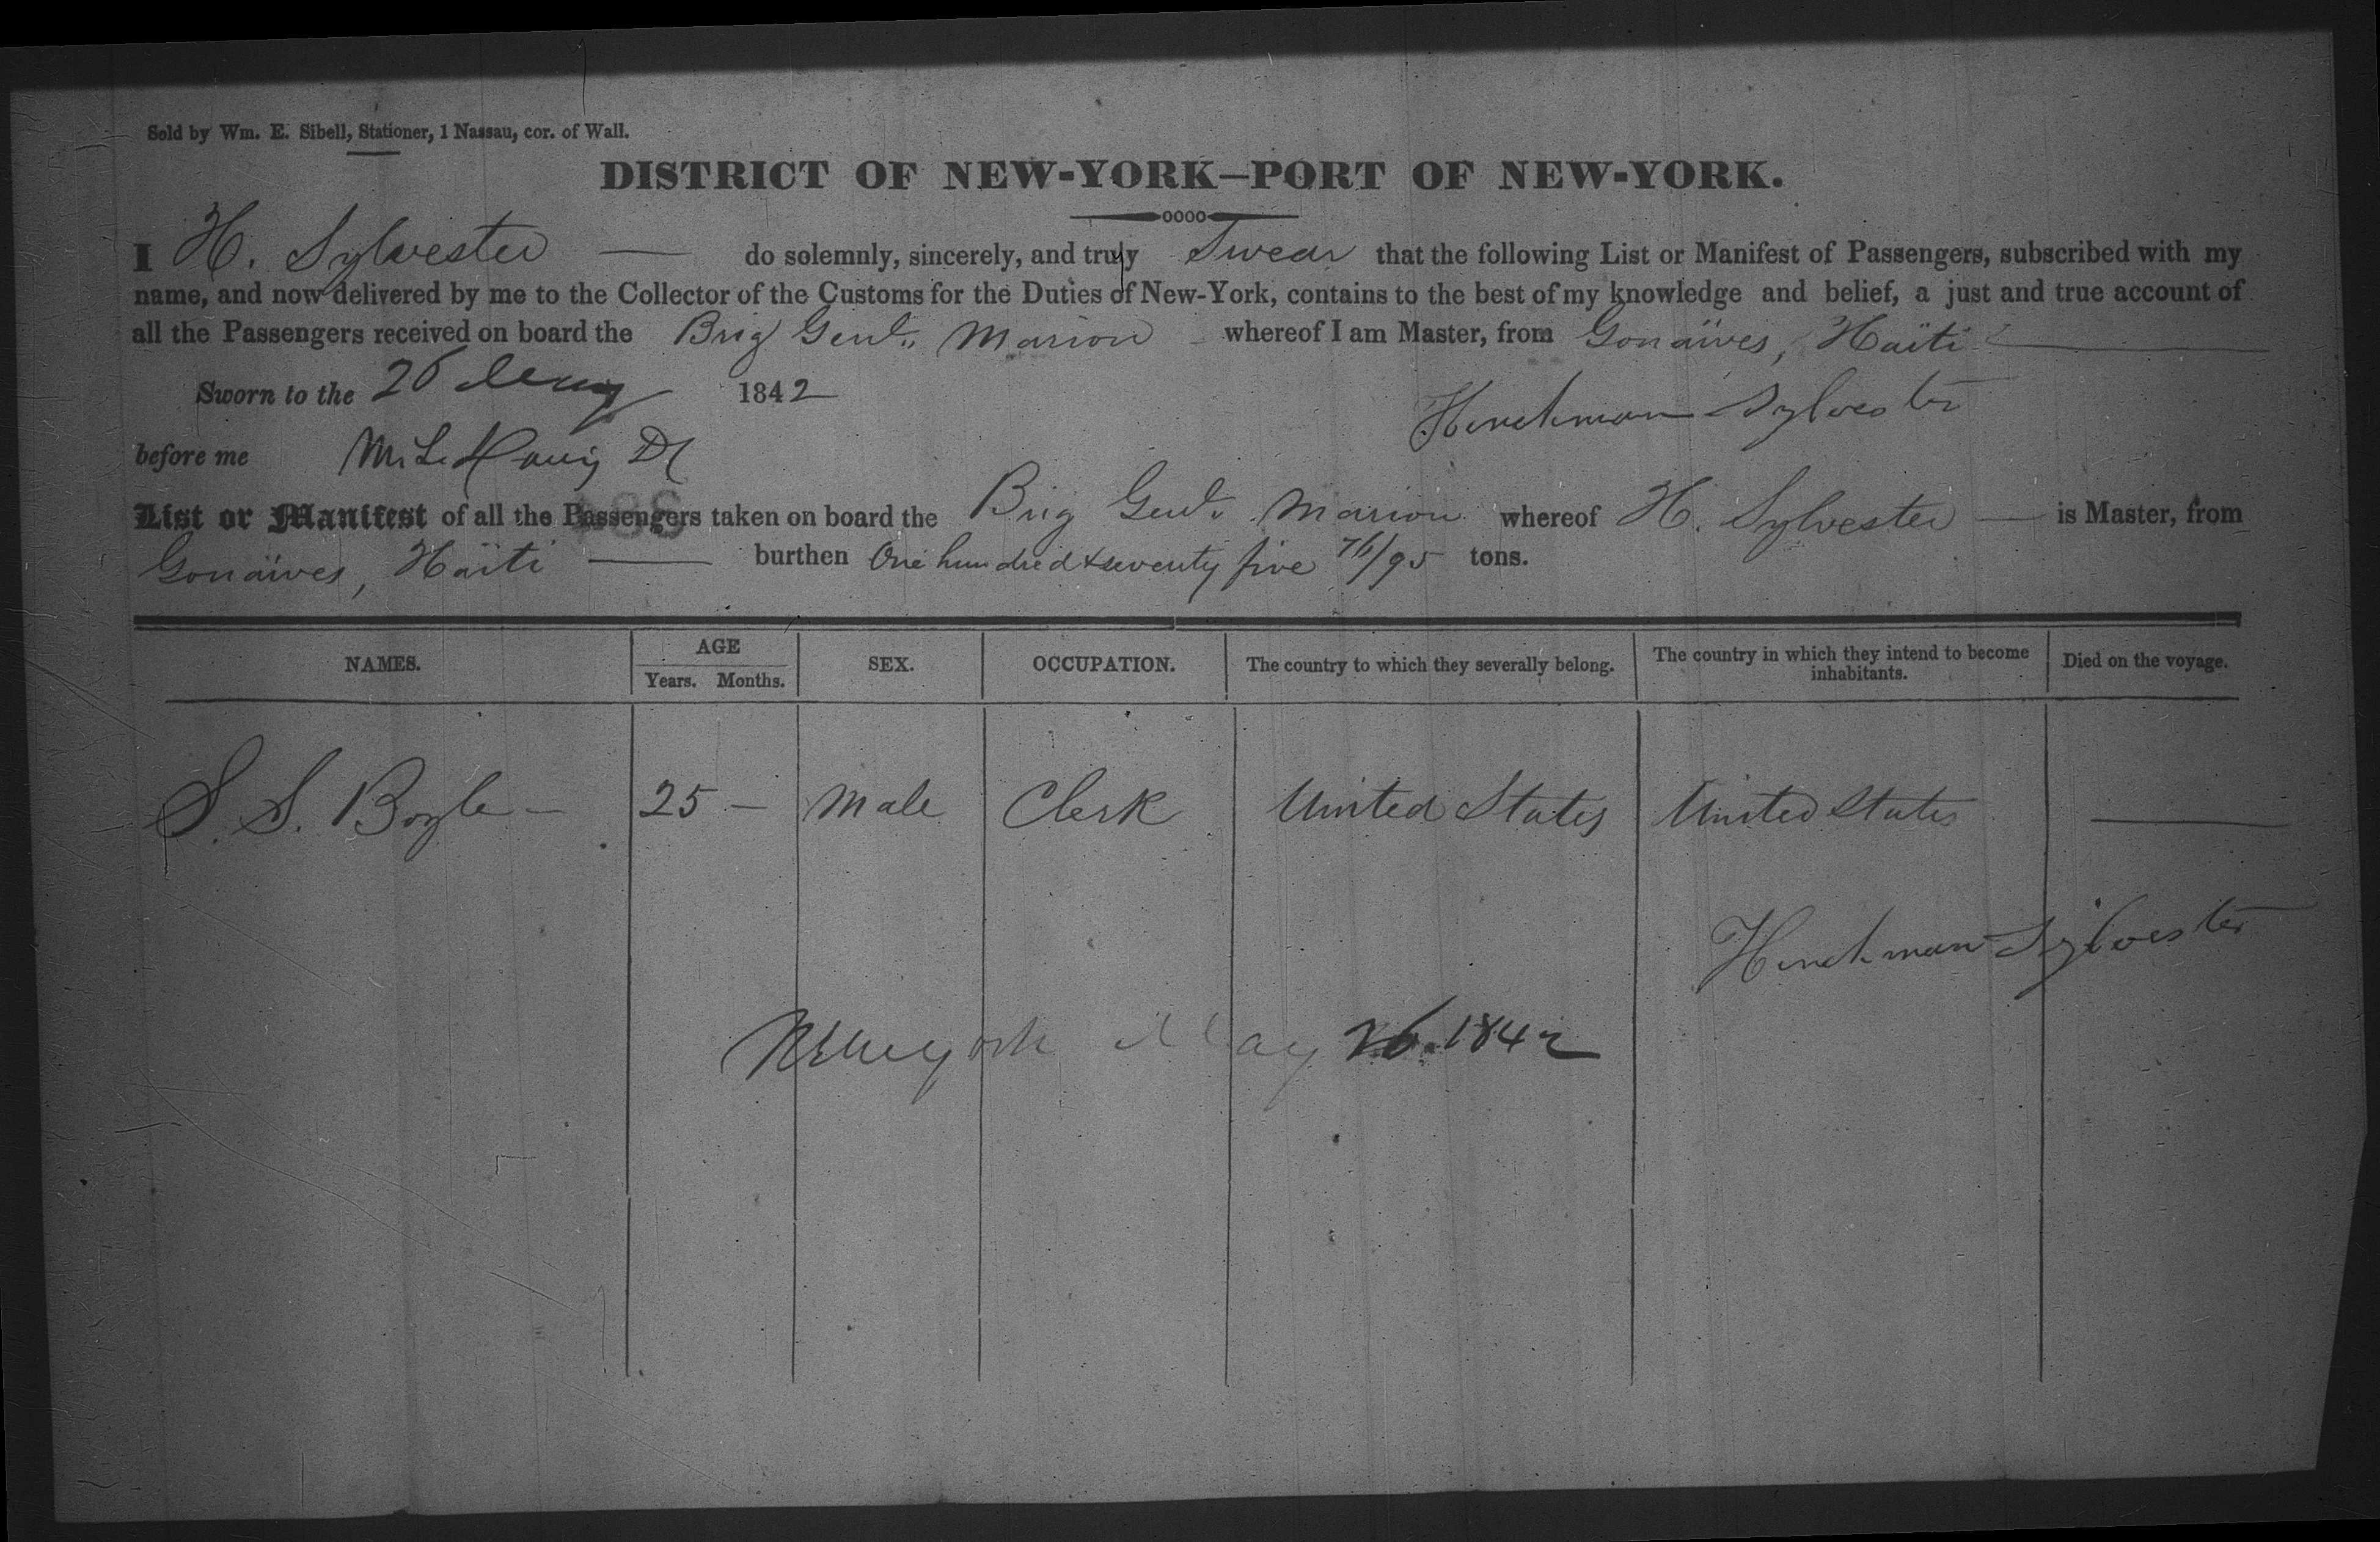 Sold by Wm. E. Sibell, Stationer, 1 Nassau, cor. of Wall.
DISTRICT OF NEW-YORK—PORT OF NEW-YORK.
I H. Sylvester — do solemnly, sincerely, and truly Swear that the following List or Manifest of Passengers, subscribed with my
name, and now delivered by me to the Collector of the Customs for the Duties of New-York, contains to the best of my knowledge and belief, a just and true account of
all the Passengers received on board the Brig Genl. Marion whereof I am Master, from Gonaïves, Haïti —
Sworn to the 26 May 1842
Henchman Sylvester
before me
List or Manifest of all the Passengers taken on board the Brig Genl. Marion whereof H. Sylvester — is Master, from
Gonaïves, Haïti — burthen One hundred & seventy five 76/95 tons.
NAMES. AGE Years. Months. SEX. OCCUPATION. The country to which they severally belong. The country in which they intend to become inhabitants. Died on the voyage.
S. S. Boyle — 25 — Male Clerk United States United States —
Henchman Sylvester
New york May 26. 1842